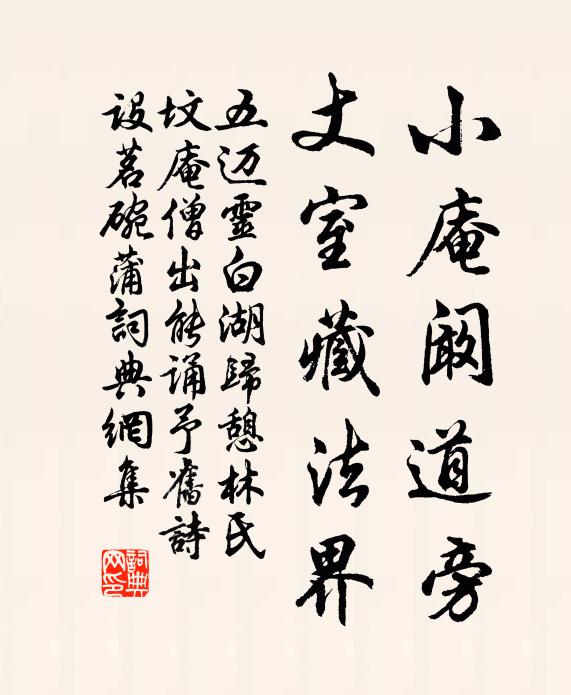 小庵阚道旁
丈室藏法界
五迈灵白湖歸憩林氏
坟庵僧出能诵予舊詩
设茗碗蒲詞典網集
詞典网印